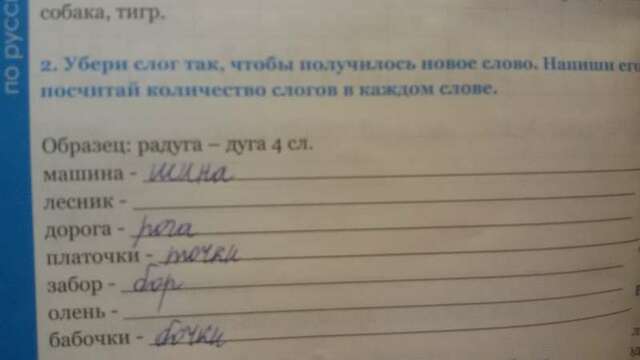 по русс
собака, тигр.
2. Убери слог так, чтобы получилось новое слово. Напиши его
посчитай количество слогов в каждом слове.
Образец: радуга – дуга 4 сл.
машина - шина
лесник -
дорога - рога
платочки - точки
забор - бор
олень -
бабочки - бочки